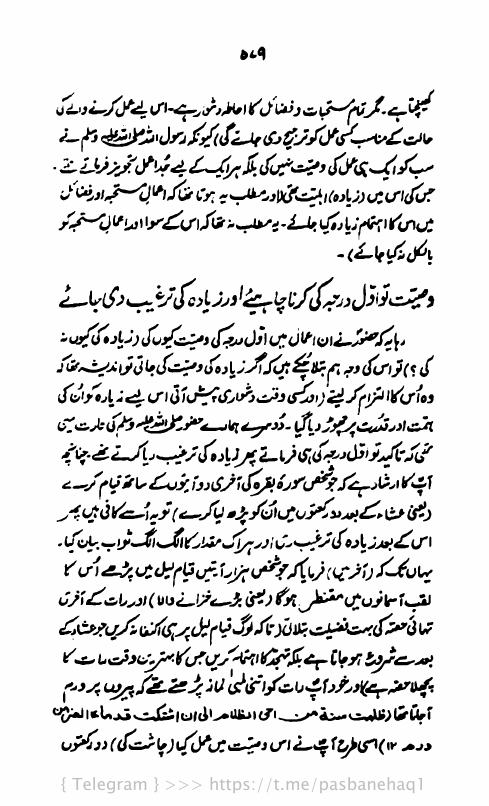 ۵۷۹
کھینچتا ہے۔ مگر تمام مستحبات و فضائل کا احاطہ دشوار ہے۔ اس لیے عمل کرنے والے کی
حالت کے مناسب کسی عمل کو ترجیح دی جائے گی) کیونکہ رسول اللہ صلی اللہ علیہ وسلم نے
سب کو ایک ہی عمل کی وصیت نہیں کی بلکہ ہر ایک کے لیے جدا عمل تجویز فرماتے تھے۔
جس کی اس میں (زیادہ) اہلیت تھی (اور مطلب یہ ہوتا تھا کہ اعمال مستحبہ اور فضائل
میں اس کا اہتمام زیادہ کیا جائے۔ یہ مطلب نہ تھا کہ اس کے سوا اور اعمال مستحبہ کو
بالکل نہ کیا جائے)۔
وصیت تو اول درجہ کی کرنا چاہیئے اور زیادہ کی ترغیب دی جائے
رہا یہ کہ حضورؐ نے ان اعمال میں اول درجہ کی وصیت کیوں کی (زیادہ کی کیوں نہ
کی؟) تو اس کی وجہ ہم بتلا چکے ہیں کہ اگر زیادہ کی وصیت کی جاتی تو اندیشہ تھا کہ
وہ اُس کا التزام کر لیتے (اور کسی وقت دشواری پیش آتی اس لیے زیادہ کو ان کی
ہمت اور قدرت پر چھوڑ دیا گیا۔ دوسرے ہمارے حضور صلی اللہ علیہ وسلم کی عادت یہی
تھی کہ تاکید تو اول درجہ کی ہی فرماتے پھر زیادہ کی ترغیب دیا کرتے تھے۔ چنانچہ
آپؐ کا ارشاد ہے کہ جو شخص سورۂ بقرہ کی آخری دو آیتوں کے ساتھ قیام کرے
(یعنی عشاء کے بعد دو رکعتوں میں اُن کو پڑھ لیا کرے) تو یہ اُسے کافی ہیں پھر
اس کے بعد زیادہ کی ترغیب دی اور ہر اک مقدار کا الگ الگ ثواب بیان کیا۔
یہاں تک کہ (آخر میں) فرمایا کہ جو شخص ہزار آیتیں قیام لیل میں پڑھے اُس کا
لقب آسمانوں میں مقنطر ہوگا (یعنی بڑے خزانے والا) اور رات کے آخری
تہائی حصہ کی بہت فضیلت بتلائی (تاکہ لوگ قیام لیل پر ہی اکتفا نہ کریں جو عشاء کے
بعد سے شروع ہو جاتا ہے بلکہ تہجد کا اہتمام کریں جس کا بہترین وقت رات کا
پچھلا حصہ ہے) اور خود آپؐ رات کو اتنی لمبی نماز پڑھتے تھے کہ پیروں پر ورم
آجاتا تھا (ظلمت سنة من احی الظلام الی ان اشتکت قدماه الضر من
ورم ۱۲) اسی طرح آپؐ نے اس وصیت میں عمل کیا (چاشت کی) دو رکعتوں
{ Telegram } >>> https://t.me/pasbanehaq1